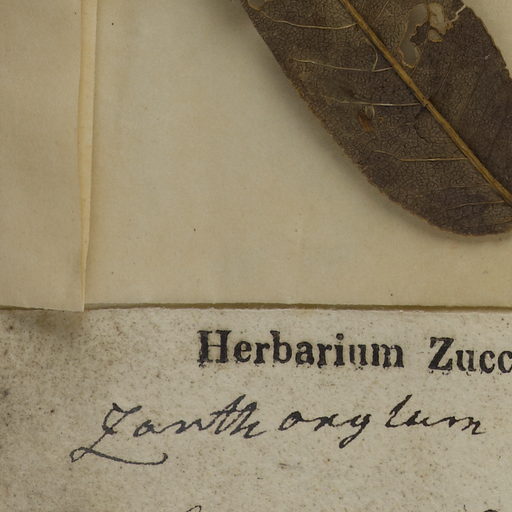 Herbarium Zucc
Zanthoxylum